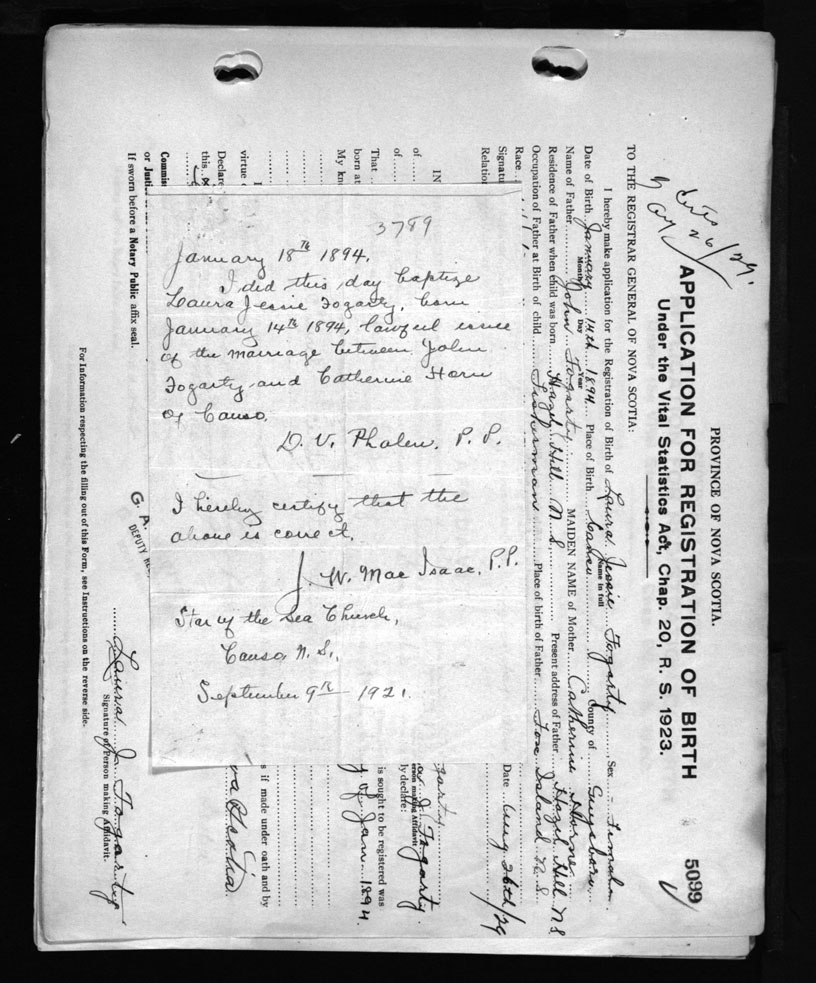 3789
January 18th 1894.
I did this day baptize
Laura Jessie Fogarty, born
January 14th 1894, lawful issue
of the marriage between John
Fogarty and Catherine Horn
of Canso.
D. V. Phalen, P. P.
I hereby certify that the
above is correct.
J. W. Mac Isaac, P.P.
Star of the Sea Church,
Canso, N. S.,
September 9th 1921.
PROVINCE OF NOVA SCOTIA.
APPLICATION FOR REGISTRATION OF BIRTH
5099
Under the Vital Statistics Act, Chap. 20, R. S. 1923.
26/29.
TO THE REGISTRAR GENERAL OF NOVA SCOTIA:
I hereby make application for the Registration of Birth of Laura Jessie Fogarty Sex
Name in full
Date of Birth January 14th 1894 Place of Birth Canso County of Guysboro
Month Day Year
Name of Father John Fogarty MAIDEN NAME of Mother Catherine Horne
Residence of Father when child was born Hazel Hill N S Present address of Father Hazel Hill N S
Occupation of Father at Birth of child Fisherman Place of birth of Father Fox Island N S
Race
Signatu
Date Aug 26th/29
Relation
IN
of garty
of J Fogarty
erson making Affidavit
y declare:
That is sought to be registered was
born at y of Jan 1894
My kn
virtue s if made under oath and by
Declare
this va Scotia
Commis
or Justic
If sworn before a Notary Public affix seal.
G. A.
DEPUTY RE
Laura J. Fogarty
Signature of Person making Affidavit.
For Information respecting the filling out of this Form, see Instructions on the reverse side.